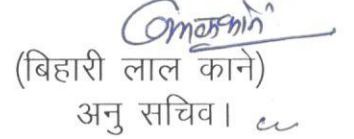 (बिहारी लाल काने)
अनु सचिव।